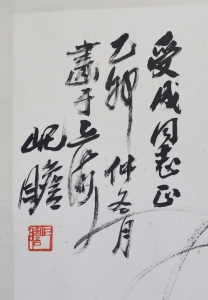 受成同志正
乙卯仲冬月
画于上海
屺瞻